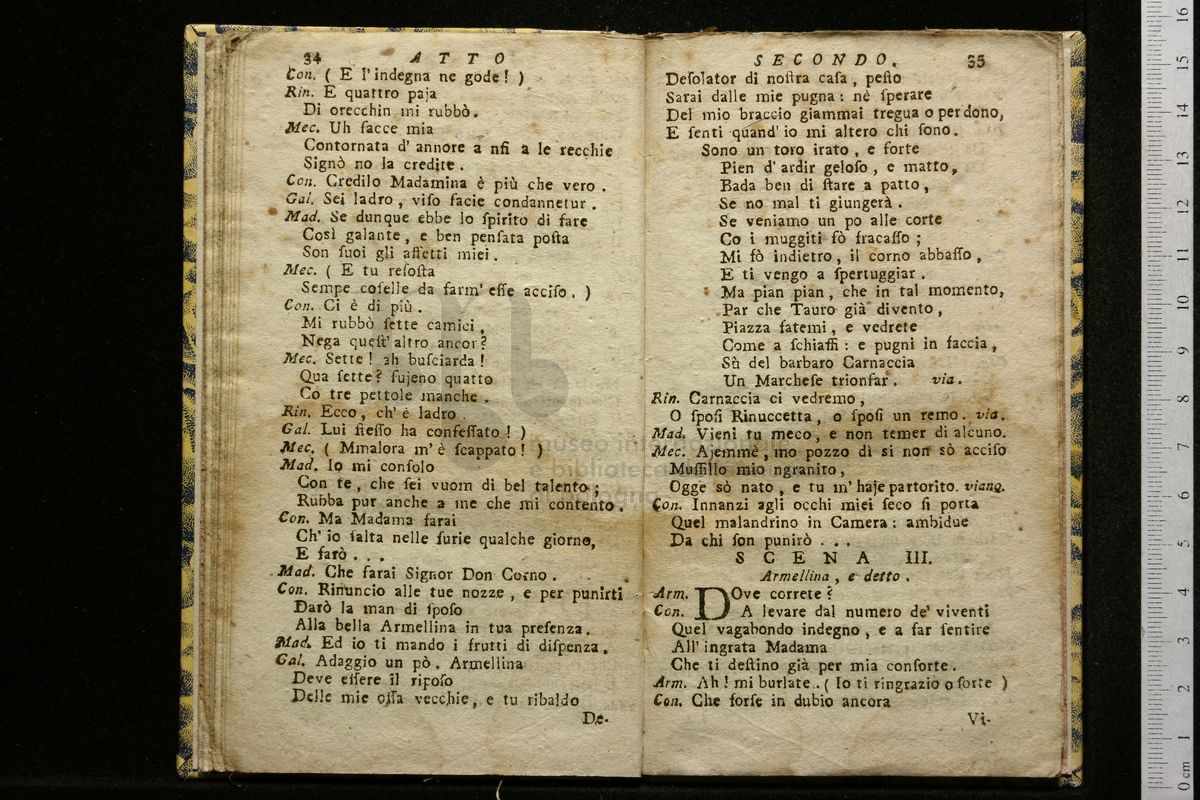 34 ATTO
Con. ( E l'indegna ne gode! )
Rin. E quattro paja
Di orecchin mi rubbò.
Mec. Uh facce mia
Contornata d' annore a nfi a le recchie
Signò no la credite.
Con. Credilo Madamina è più che vero.
Gal. Sei ladro, viſo facie condannetur.
Mad. Se dunque ebbe lo ſpirito di fare
Così galante, e ben penſata poſta
Son ſuoi gli affetti miei.
Mec. ( E tu reſoſta
Sempe coſelle da farm' eſſe acciſo. )
Con. Ci è di più.
Mi rubbò ſette camici,
Nega queſt' altro ancor?
Mec. Sette! ah buſciarda!
Qua ſette? fujeno quatto
Co tre pettole manche.
Rin. Ecco, ch' è ladro.
Gal. Lui ſteſſo ha confeſſato! )
Mec. ( Mmalora m' è ſcappato! )
Mad. Io mi conſolo
Con te, che ſei vuom di bel talento;
Rubba pur anche a me che mi contento.
Con. Ma Madama farai
Ch' io ſalta nelle furie qualche giorno,
E farò . . .
Mad. Che farai Signor Don Corno.
Con. Rinuncio alle tue nozze, e per punirti
Darò la man di ſpoſo
Alla bella Armellina in tua preſenza.
Mad. Ed io ti mando i frutti di diſpenza.
Gal. Adaggio un pò. Armellina
Deve eſſere il ripoſo
Delle mie oſſa vecchie, e tu ribaldo
De-
SECONDO. 35
Deſolator di noſtra caſa, peſto
Sarai dalle mie pugna: nè ſperare
Del mio braccio giammai tregua o perdono,
E ſenti quand' io mi altero chi ſono.
Sono un toro irato, e forte
Pien d' ardir geloſo, e matto,
Bada ben di ſtare a patto,
Se no mal ti giungerà.
Se veniamo un po alle corte
Co i muggiti fò fracaſſo;
Mi fò indietro, il corno abbaſſo,
E ti vengo a ſpertuggiar.
Ma pian pian, che in tal momento,
Par che Tauro già divento,
Piazza fatemi, e vedrete
Come a ſchiaffi: e pugni in faccia,
Sù del barbaro Carnaccia
Un Marcheſe trionfar. via.
Rin. Carnaccia ci vedremo,
O ſpoſi Rinuccetta, o ſpoſi un remo. via.
Mad. Vieni tu meco, e non temer di alcuno.
Mec. Ajemmè, mo pozzo dì si non sò acciſo
Muſſillo mio ngranito,
Ogge sò nato, e tu m' haje partorito. viano.
Con. Innanzi agli occhi miei ſeco ſi porta
Quel malandrino in Camera: ambidue
Da chi ſon punirò . . .
SCENA III.
Armellina, e detto.
Arm. DOve correte?
Con. A levare dal numero de' viventi
Quel vagabondo indegno, e a far ſentire
All' ingrata Madama
Che ti deſtino già per mia conſorte.
Arm. Ah! mi burlate. ( Io ti ringrazio o ſorte )
Con. Che forſe in dubio ancora
Vi-